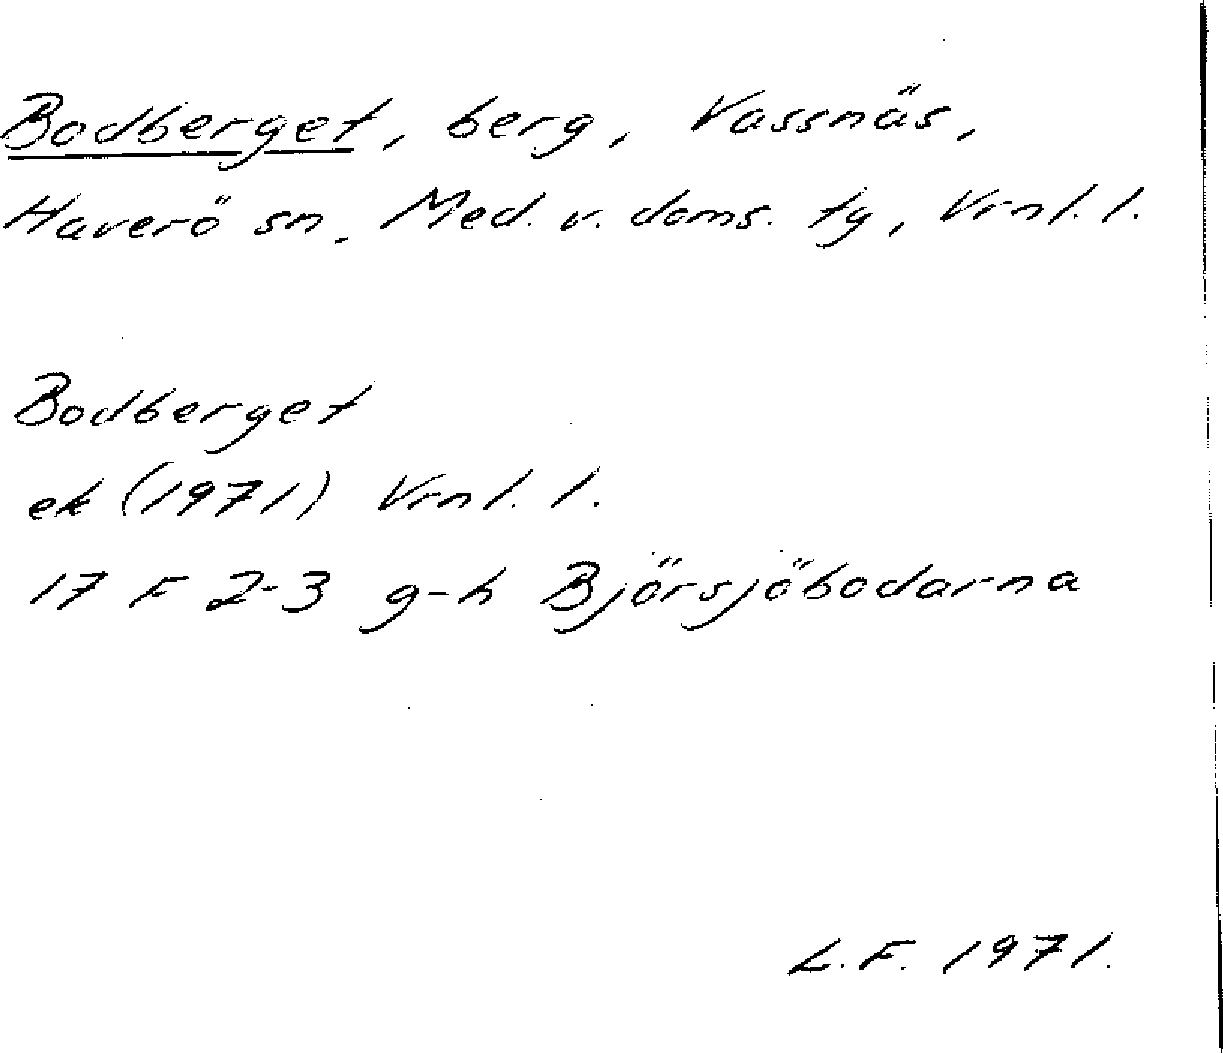 Bodberget, berg, Vassnäs,
Haverö sn, Med. v. doms. tg, Vrnl. l.
Bodberget
ek (1971) Vrnl. l.
17 F 2-3 g-h Björsjöbodarna
L.F. 1971.